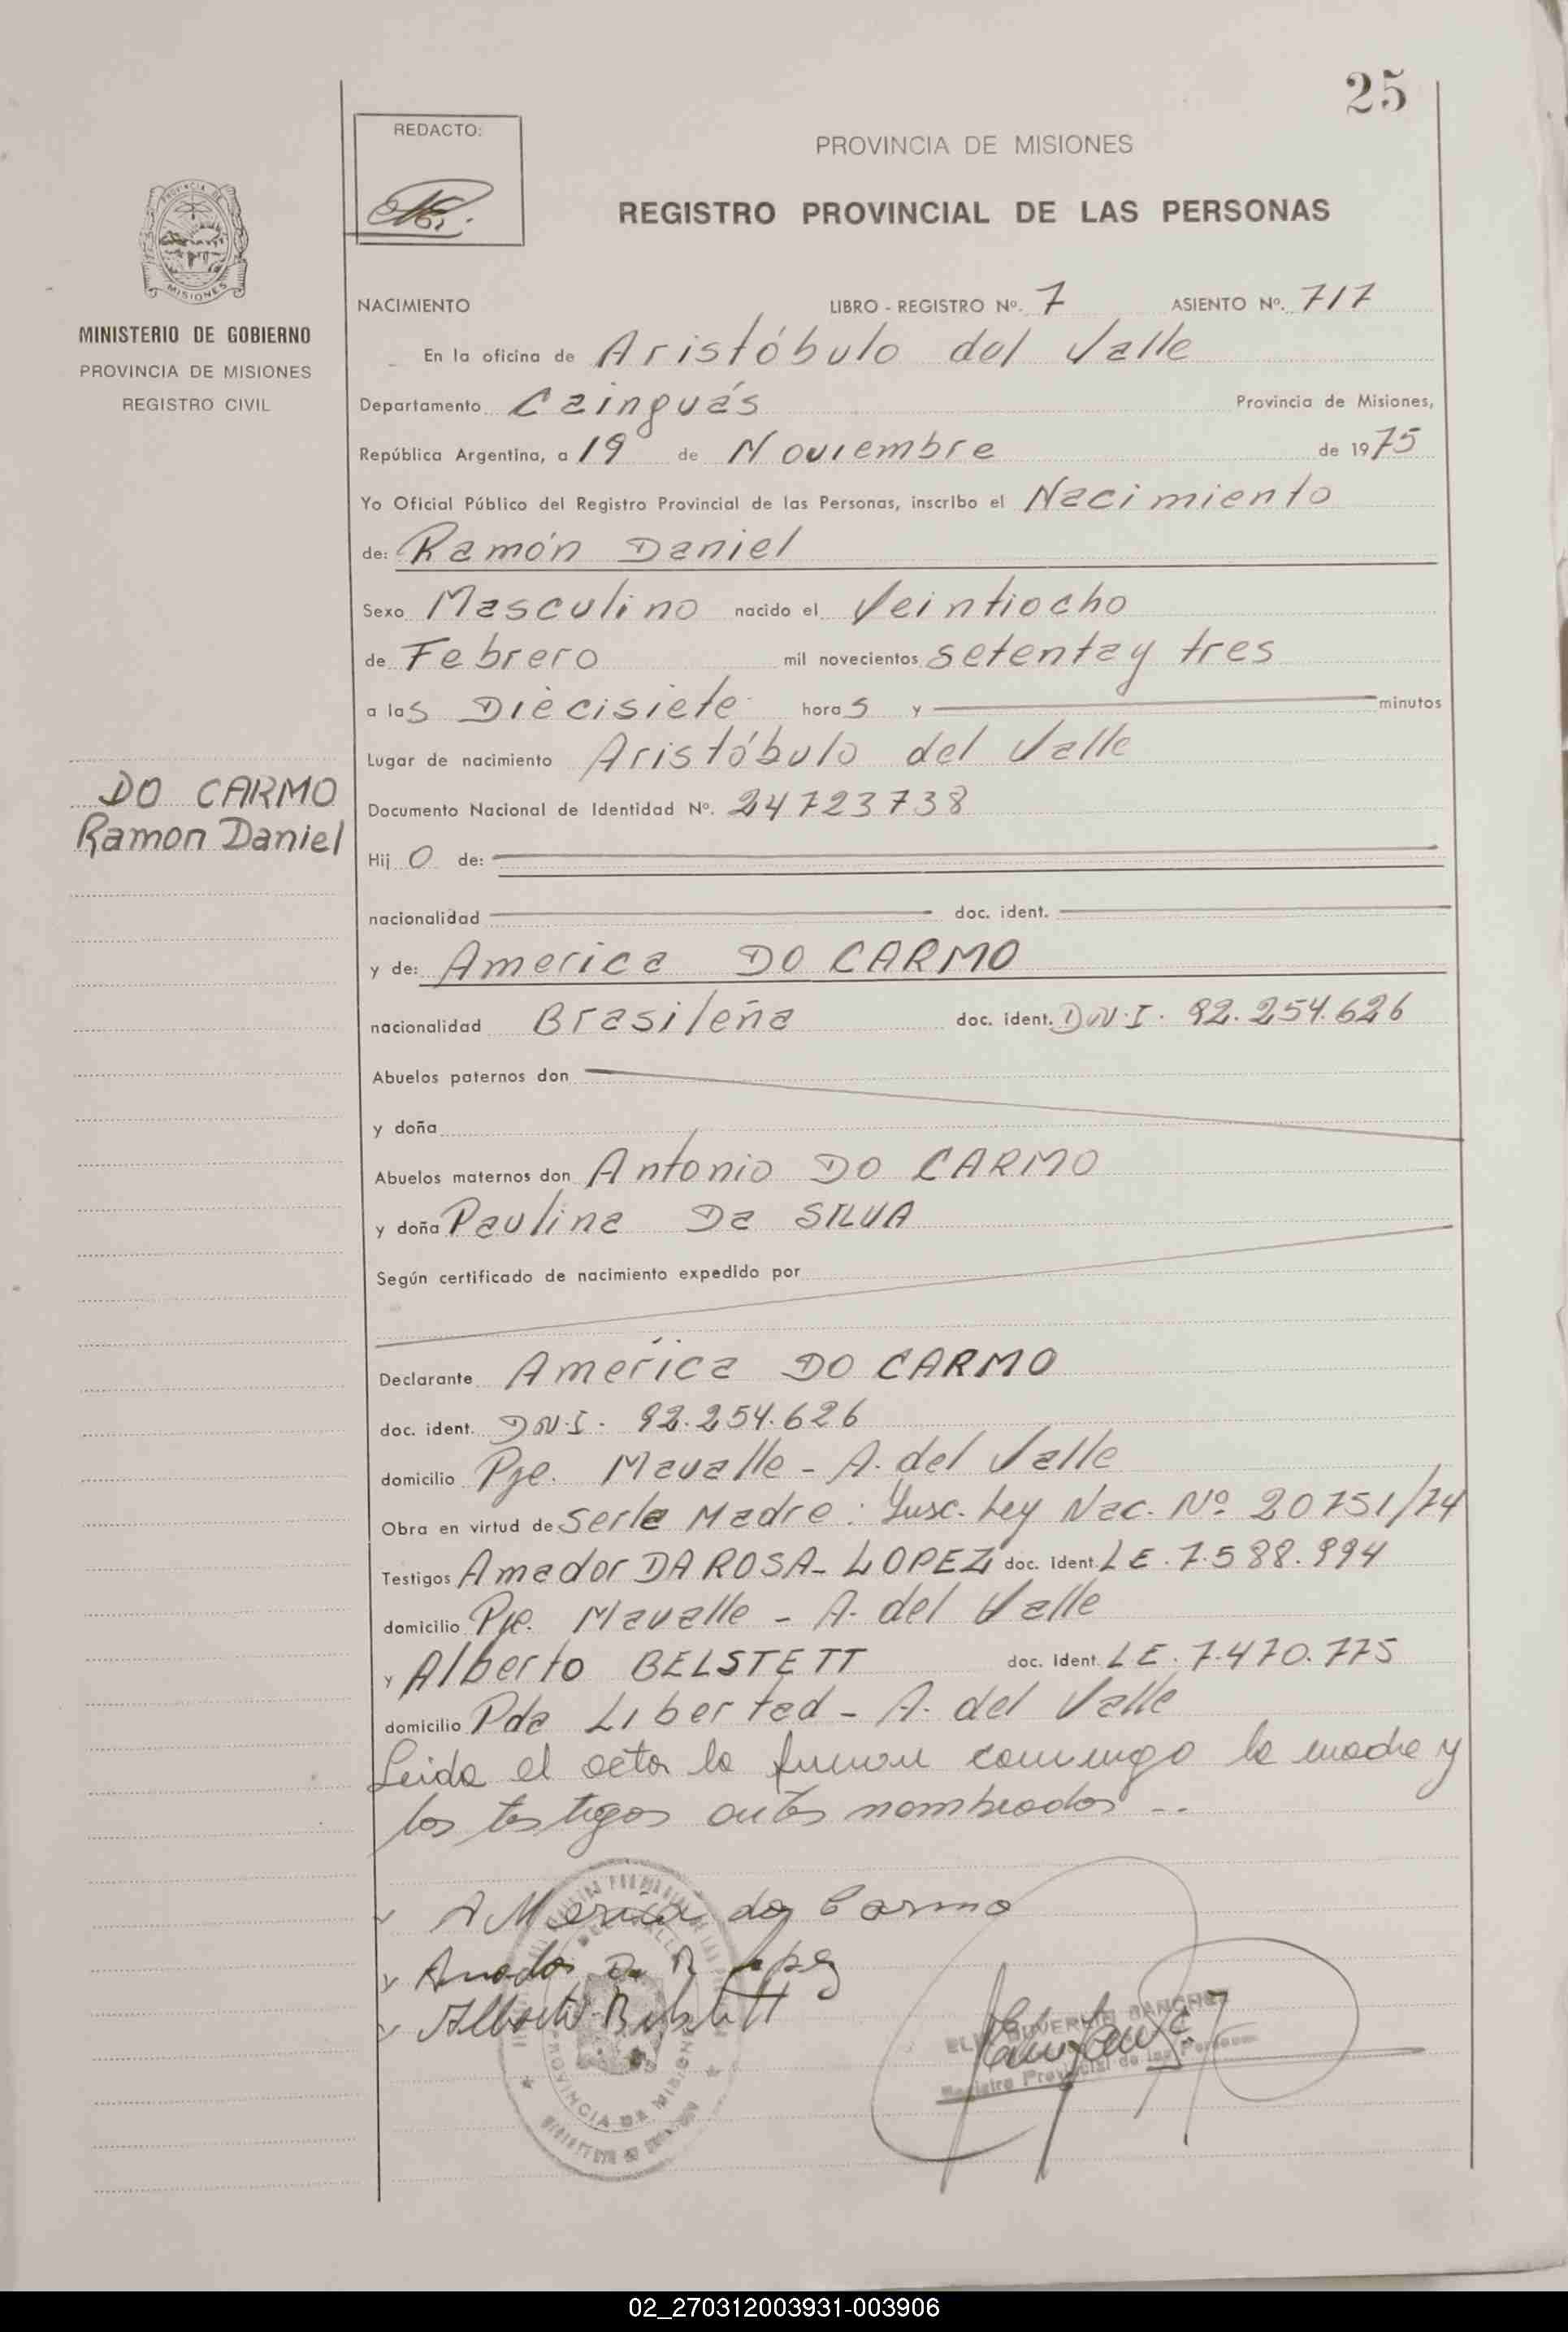 25
REDACTO:
PROVINCIA DE MISIONES
REGISTRO PROVINCIAL DE LAS PERSONAS
PROVINCIA DE
MISIONES
MINISTERIO DE GOBIERNO
PROVINCIA DE MISIONES
REGISTRO CIVIL
NACIMIENTO LIBRO - REGISTRO Nº. 7 ASIENTO Nº. 717
En la oficina de Aristóbulo del Valle
Departamento Cainguás Provincia de Misiones,
República Argentina, a 19 de Noviembre de 1975
Yo Oficial Público del Registro Provincial de las Personas, inscribo el Nacimiento
de: Ramón Daniel
Sexo Masculino nacido el Veintiocho
de Febrero mil novecientos setenta y tres
a las Diecisiete horas y minutos
Lugar de nacimiento Aristóbulo del Valle
DO CARMO
Ramon Daniel
Documento Nacional de Identidad Nº. 24723738
Hijo de:
nacionalidad doc. ident.
y de: America DO CARMO
nacionalidad Brasileña doc. ident. D.N.I. 92.254.626
Abuelos paternos don
y doña
Abuelos maternos don Antonio DO CARMO
y doña Paulina Da SILVA
Según certificado de nacimiento expedido por
Declarante América DO CARMO
doc. ident. D.N.I. 92.254.626
domicilio Pje. Mavalle - A. del Valle
Obra en virtud de serla Madre. Insc. Ley Nac. Nº 20751/74
Testigos Amador DA ROSA - LOPEZ doc. ident. LE. 7.588.994
domicilio Pje. Mavalle - A. del Valle
y Alberto BELSTETT doc. ident. LE. 7.470.775
domicilio Pda Libertad - A. del Valle
Leida el acta la firman conmigo la madre y
los testigos antes nombrados --
AMerica do Carmo
Amador Da R Lopez
Alberto Belstett
PROVINCIA DE MISIONES
SANCHEZ
Registro Provincial de las Personas
02_270312003931-003906